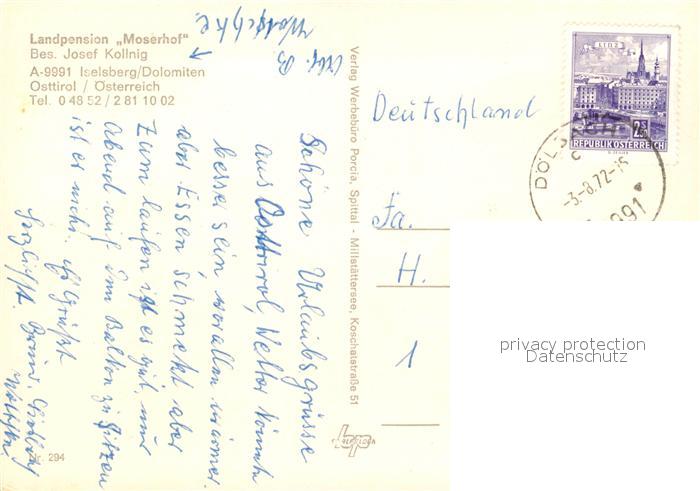 Landpension „Moserhof“
Bes. Josef Kollnig
A-9991 Iselsberg/Dolomiten
Osttirol / Österreich
Tel. 0 48 52 / 2 81 10 02
Schöne Urlaubsgrüsse
aus Osttirol, Wetter könnte
besser sein, vor allem wärmer
aber Essen schmekt aber
zum laufen ist es gut. nur
Abend auf dem Balkon zu sitzen
ist er nicht. Es Grüßt
Herzlichst.
Nr. 294
Verlag Werbebüro Porcia, Spittal - Millstättersee, Koschatstraße 51
Deutschland
Fa.
H.
1
LINZ
2.50
REPUBLIK ÖSTERREICH
DÖLSACH
-3.-8.72-15
9991
privacy protection
Datenschutz